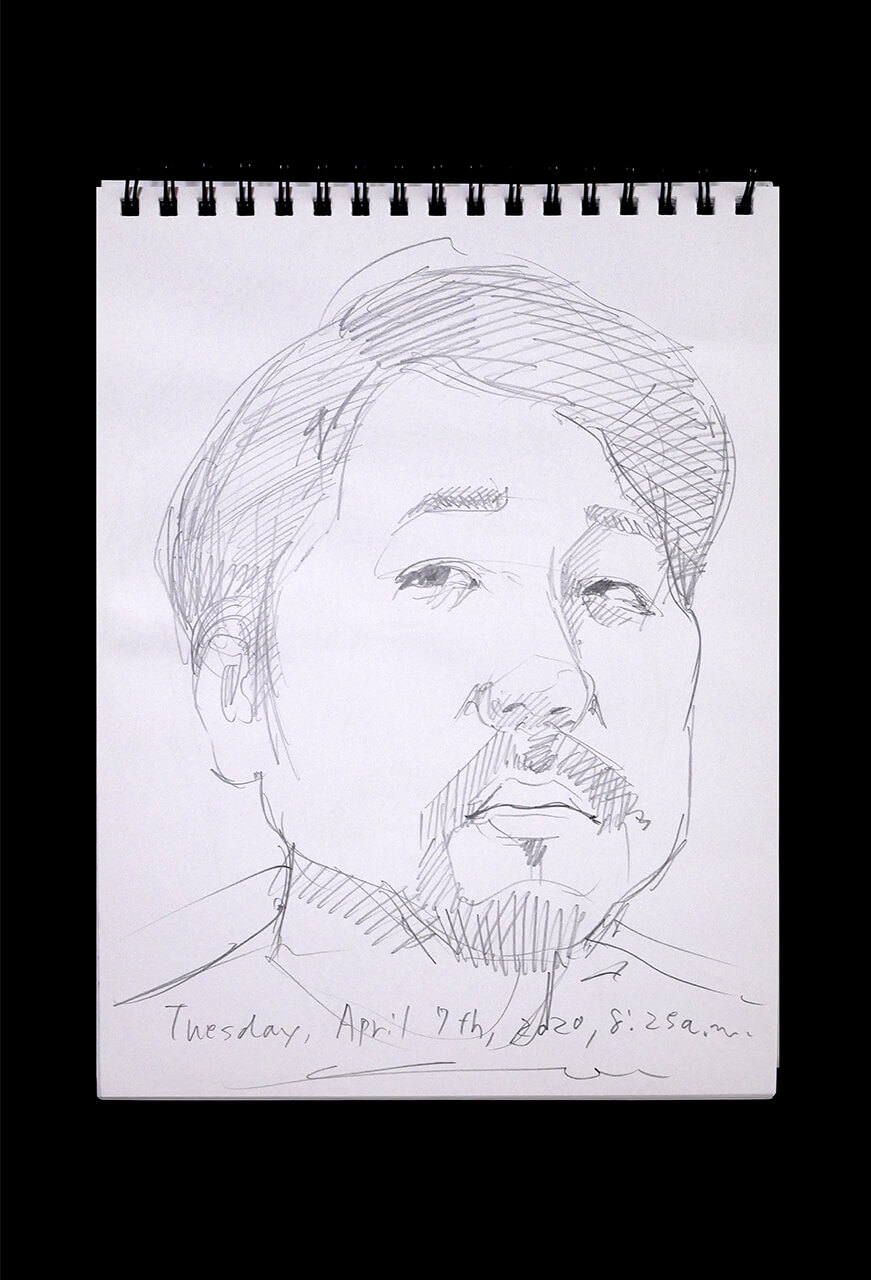 Tuesday, April 7th, 2020, 8:25a.m.